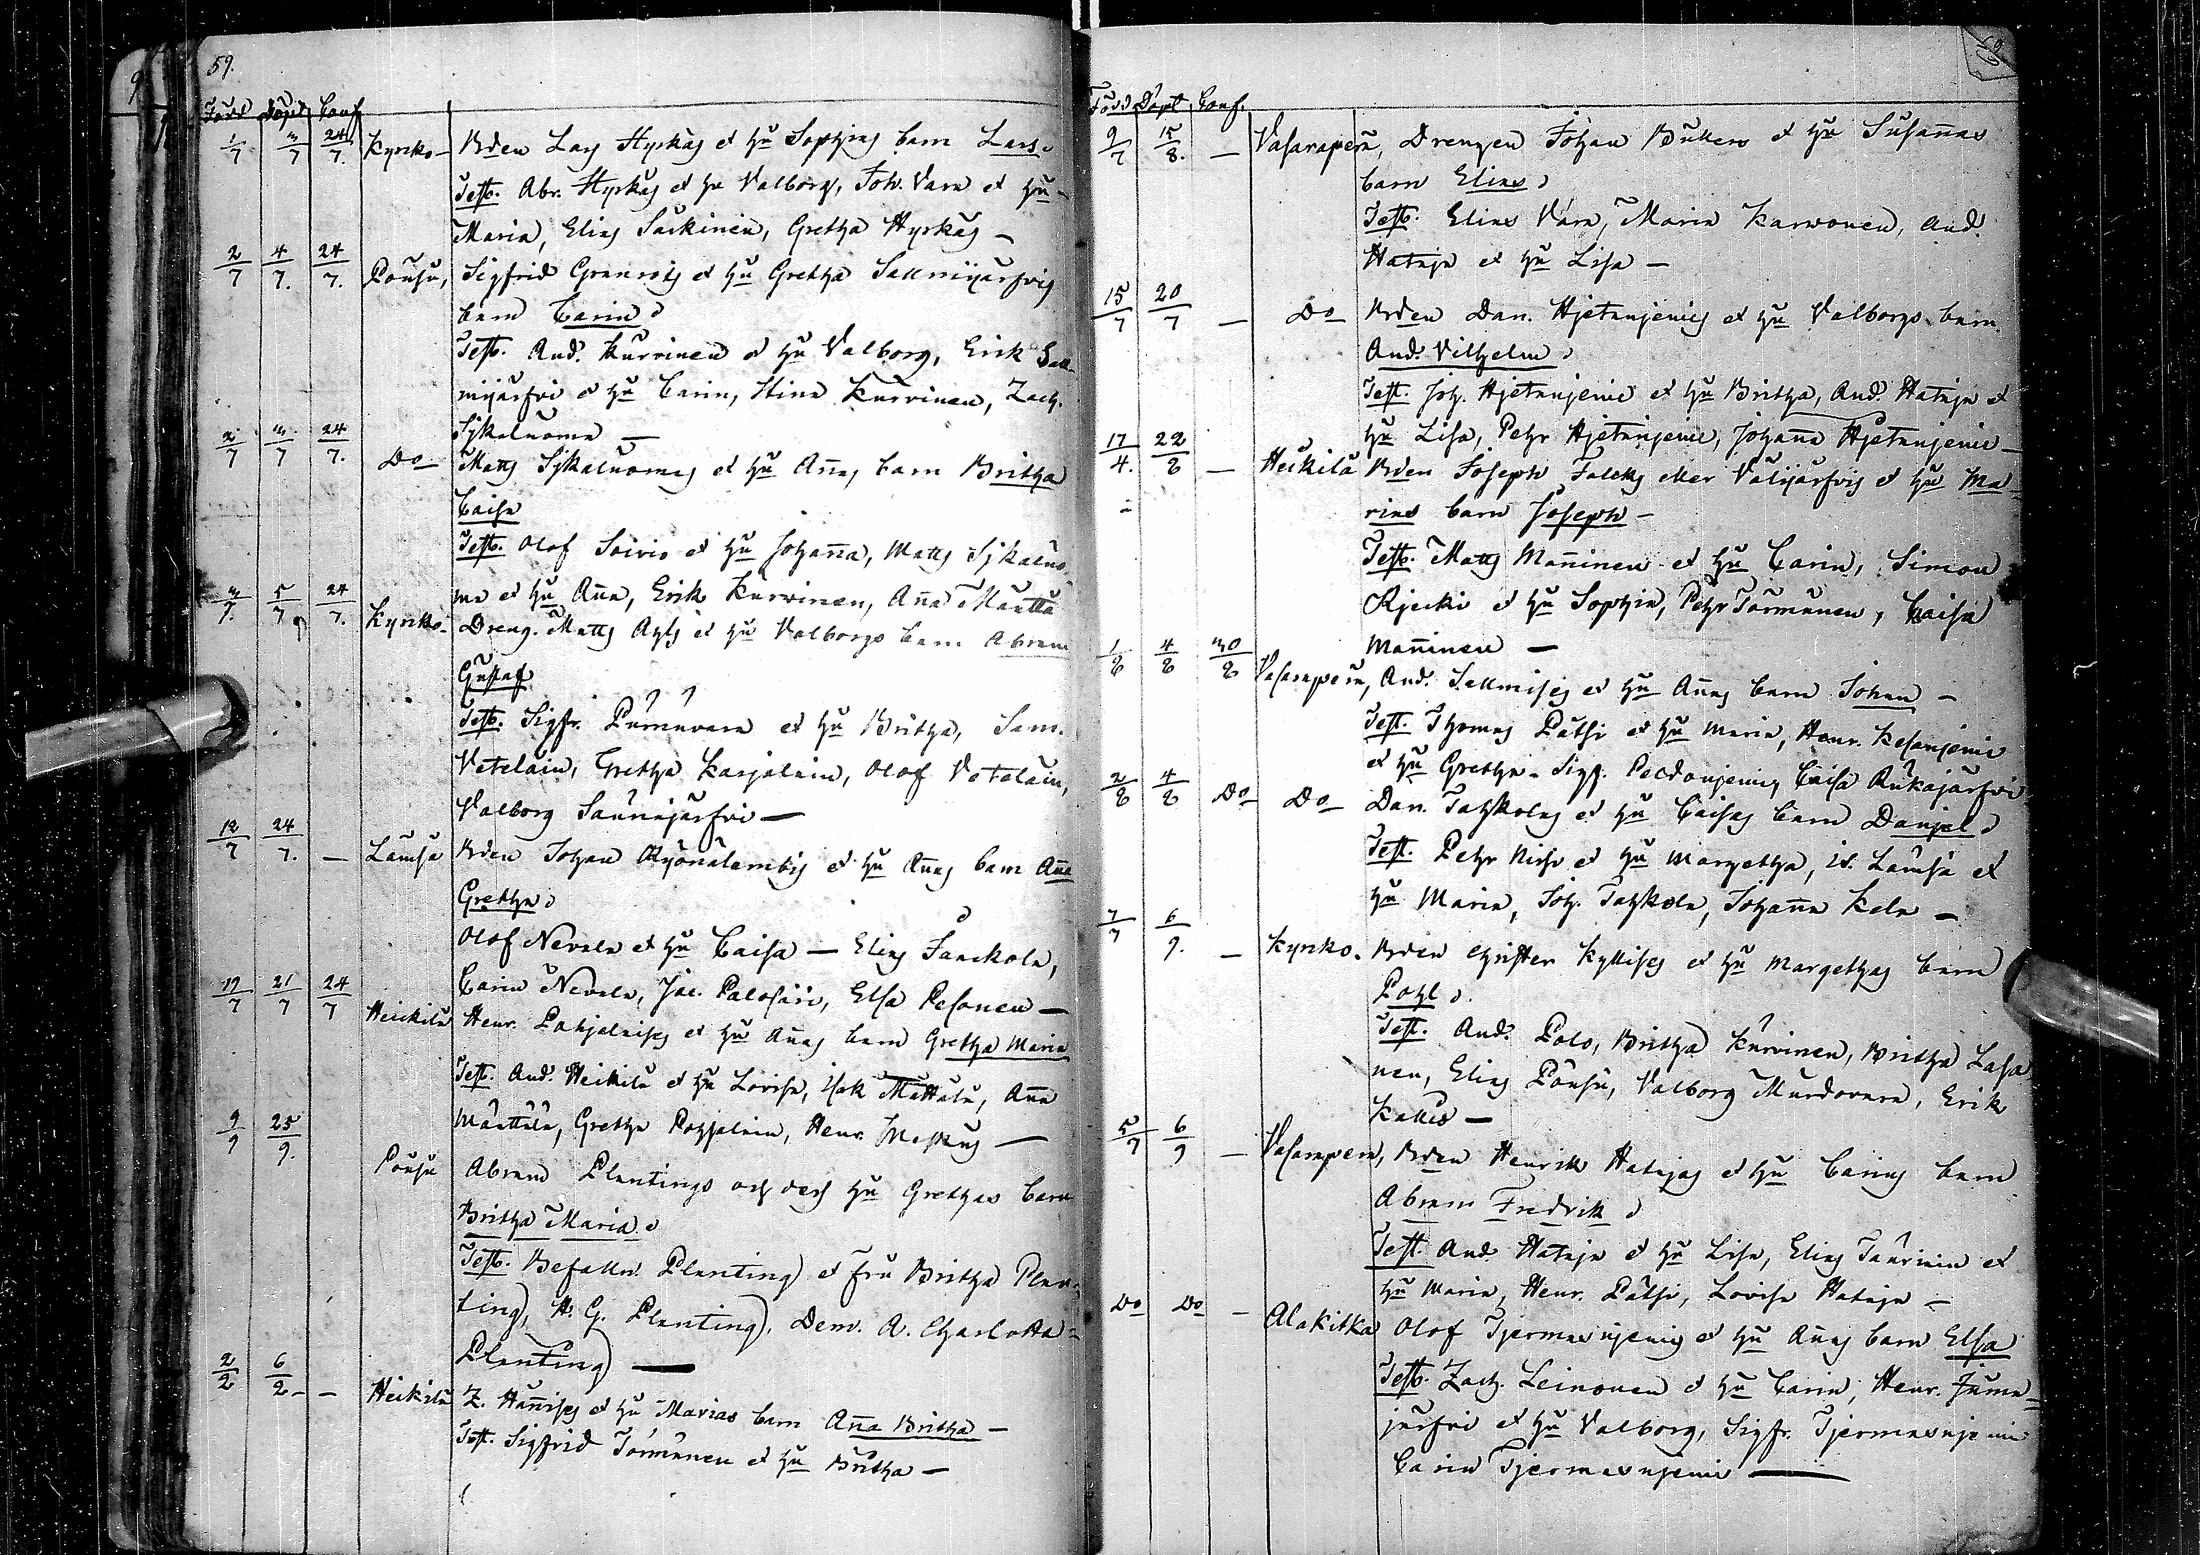 59.
Född Döpt Conf.
1/7 3/7 24/7. Kynko- Bden Lars Hyrkäs et hu Sophias barn Lars.
Test. Abr. Hyrkäs et hu Valborg, Joh. Vara et hu
Maria, Elias Säkkinen, Gretha Hyrkäs —
2/7 4/7. 24/7. Pousu, Sigfrid Granroths et hu Gretha Sallmijärfvis
barn Carin
Test. And. Kurvinen et hu Valborg, Erik Sall-
mijärfvi et hu Carin, Stina Kurvinen, Zach.
Sjkaluoma —
2/7 3/7 24/7. Do Matts Sjkaluomas et hu Annas barn Britha
Caisa
Test. Olof Soivio et hu Johanna, Matts Sjkaluo-
ma et hu Anna, Erik Kurvinen, Anna Määttä
3/7. 5/7 24/7. Kynko- Dreng. Matts Ahls et hu Valborgs barn Abram
Gustaf
Test. Sigfr. Purnuvara et hu Britha, Sam.
Vetelain, Gretha Karjalain, Olof Vetelain,
Valborg Saunajärfvi —
12/7 24/7. — Lämsä Bden Johan Ryönälambis et hu Annas barn Anna
Gretha
Olof Nevala et hu Caisa — Elias
Carin Nevala, Jac. Palosäri, Elsa Pesonen —
19/7 21/7 24/7 Heikilä Henr. Pohjolaises et hu Annas barn Gretha Maria
Test. And. Heikilä et hu Lovisa, Isak Määttälä, Anna
Määttälä, Gretha Pohjolain, Henr. —
9/9 25/9. Pousu Abram Plantings och dess hu Grethas barn
Britha Maria
Test. Befalln. Planting et Fru Britha Plan-
ting, H. G. Planting, Dem. A. Charlotta
Planting —
2/2 6/2 — Heikilä Z. Hännises et hu Marias barn Anna Britha —
Test. Sigfrid Törmänen et hu Britha —
Född Döpt Conf.
9/7 15/8. — Vasarapera, Drengen Johan Bukers et hu Susannas
barn Elias
Test. Elias Vara, Maria Karvonen, And.
Hataja et hu Lisa —
15/7 20/7 — Do Bden Dan. Hjetanjemis et hu Valborgs barn
And. Vilhelm
Test. Joh. Hjetanjemi et hu Britha, And. Hataja et
hu Lisa, Pehr Hjetanjemi, Johanna Hjetanjemi —
17/4. 22/8 — Heikilä Bden Joseph Falcks eller Välijärfvis et hu Ma-
rias barn Joseph —
Test. Matts Manninen et hu Carin, Simon
Rjecki et hu Sophia, Pehr Törmänen, Caisa
Manninen —
1/8 4/8 30/8 Vasarapera, And. Sallmises et hu Annas barn Johan —
Test. Thomas Pätsi et hu Maria, Henr. Kesanjemi
et hu Gretha. Sigf. Peldonjemi, Caisa Rukajärfvi
2/8 4/8 Do Do Dan. Tahkolas et hu Caisas barn Danjel
Test. Pehr Nissi et hu Margetha, Is. Lämsä et
hu Maria, Joh. Tahkola, Johanna Kela —
7/7 6/9. — Kynko. Bden Christer Kyllises et hu Margethas barn
Pohl
Test. And. Polo, Britha Kurvinen, Britha Lasa-
nen, Elias Pousu, Valborg Murdovara, Erik
Kallio —
5/7 6/9 — Vasarapera, Bden Henrik Hatajas et hu Carins barn
Abram Fredrik
Test. And. Hataja et hu Lisa, Elias Taurinin et
hu Maria, Henr. Pätsi, Lovisa Hataja —
Do Do — Alakitka Olof Tjermasnjemis et hu Annas barn Elsa
Test. Zach. Leinonen et hu Carin, Henr. Juma-
järfvi et hu Valborg, Sigfr. Tjermasnjemi
Carin Tjermasnjemi —